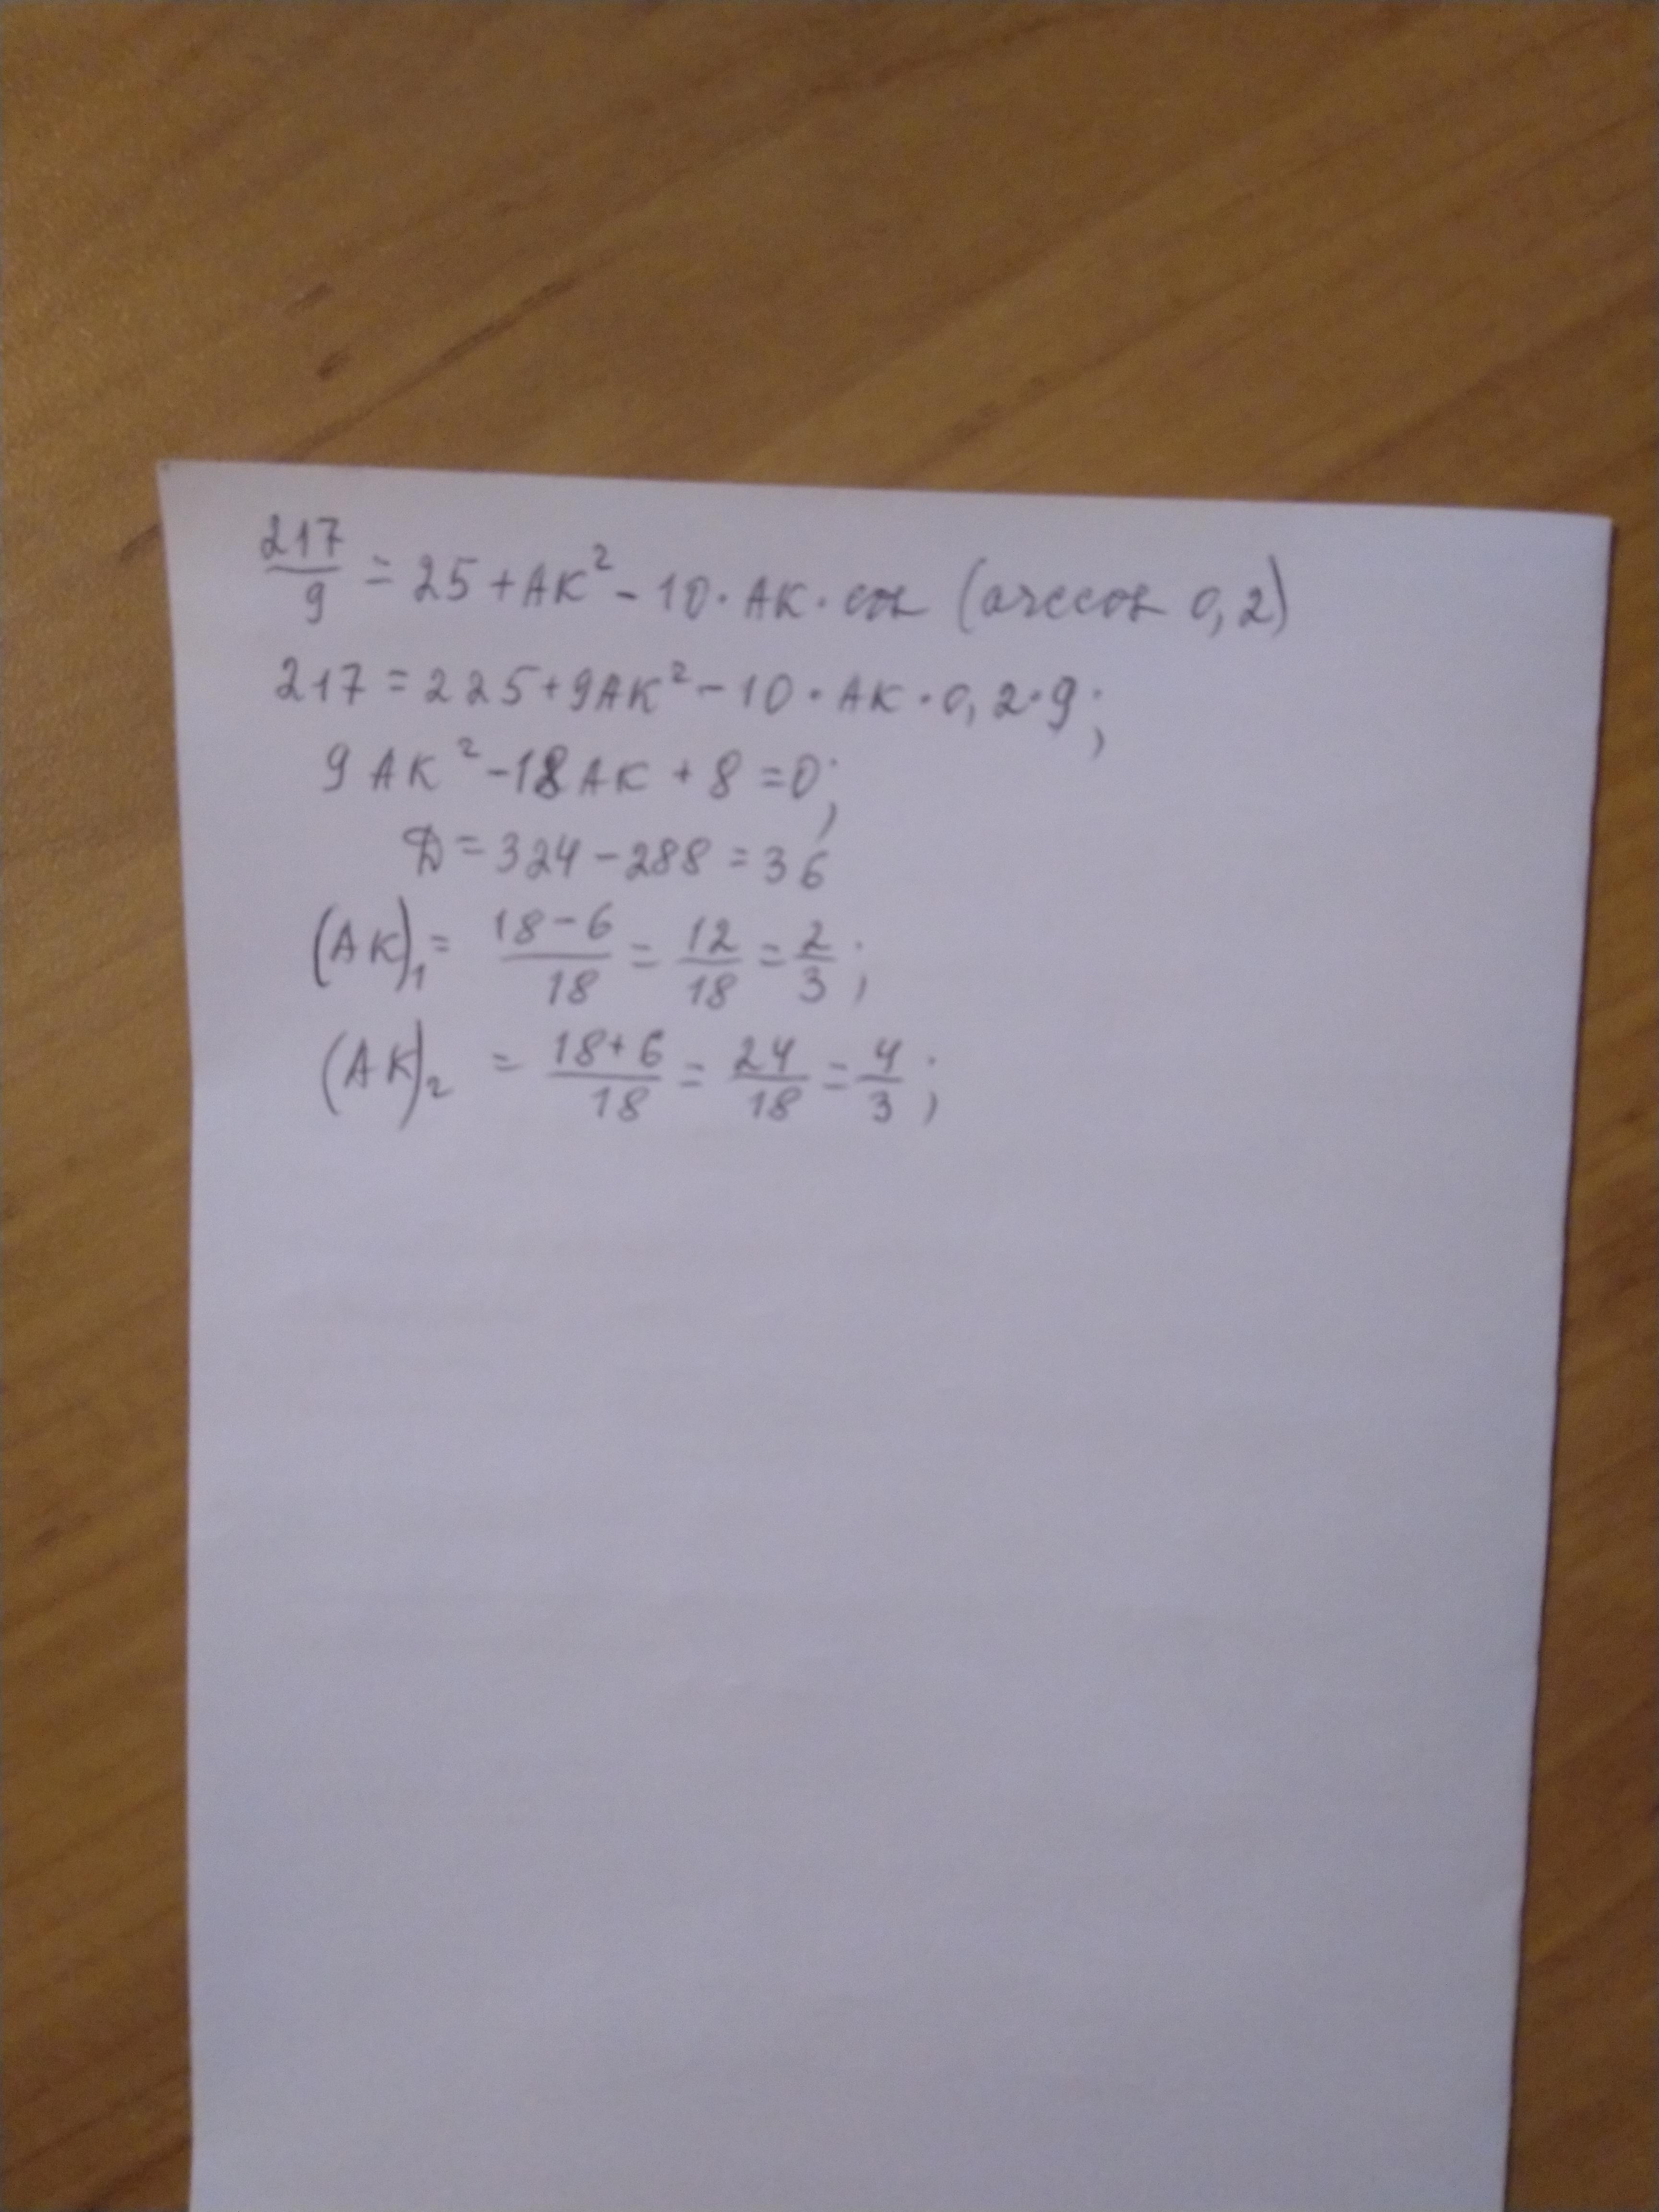 217/9 = 25 + AK² - 10 · AK · cos (arccos 0,2)
217 = 225 + 9AK² - 10 · AK · 0,2 · 9;
9 AK² - 18 AK + 8 = 0;
D = 324 - 288 = 36
(AK)₁ = (18 - 6)/18 = 12/18 = 2/3;
(AK)₂ = (18 + 6)/18 = 24/18 = 4/3;